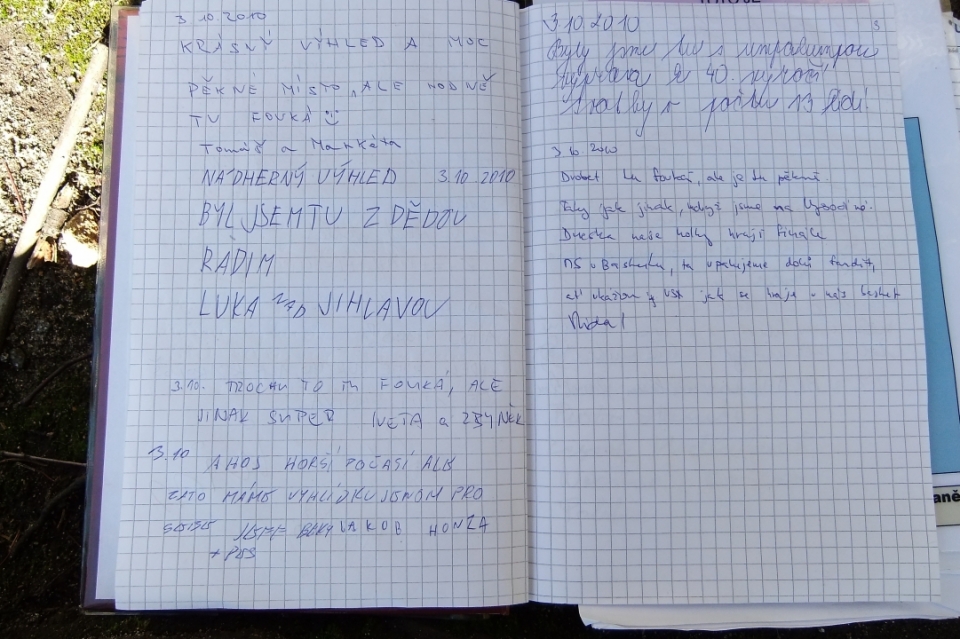 3.10.2010
KRÁSNÝ VÝHLED A MOC
PĚKNÉ MÍSTO, ALE HODNĚ
TU FOUKÁ
Tomáš a Markéta
NÁDHERNÝ VÝHLED 3.10.2010
BYL JSEM TU Z DĚDOU
RADIM
LUKA NAD JIHLAVOU
3.10. TROCHU TO TU FOUKÁ, ALE
JINAK SUPER IVETA a ZBYNĚK
3.10 AHOJ HORŠÍ POČASÍ ALE
ZATO MÁME VYHLÍDKU JENOM PRO
SEBE JSME JAKOB HONZA
+ PES
3.10.2010
8
Byly jsme tu s
výprava k 40. výročí
svatby v počtu 13 lidí!
3 10 2010
Drobet tu fouká, ale je tu pěkně.
Taky jak jinak, když jsme na Vysočině.
Dneska naše holky hrají finále
MS v Basketu, tak upalujeme dolů fandit,
ať ukážou USA jak se hraje u nás basket